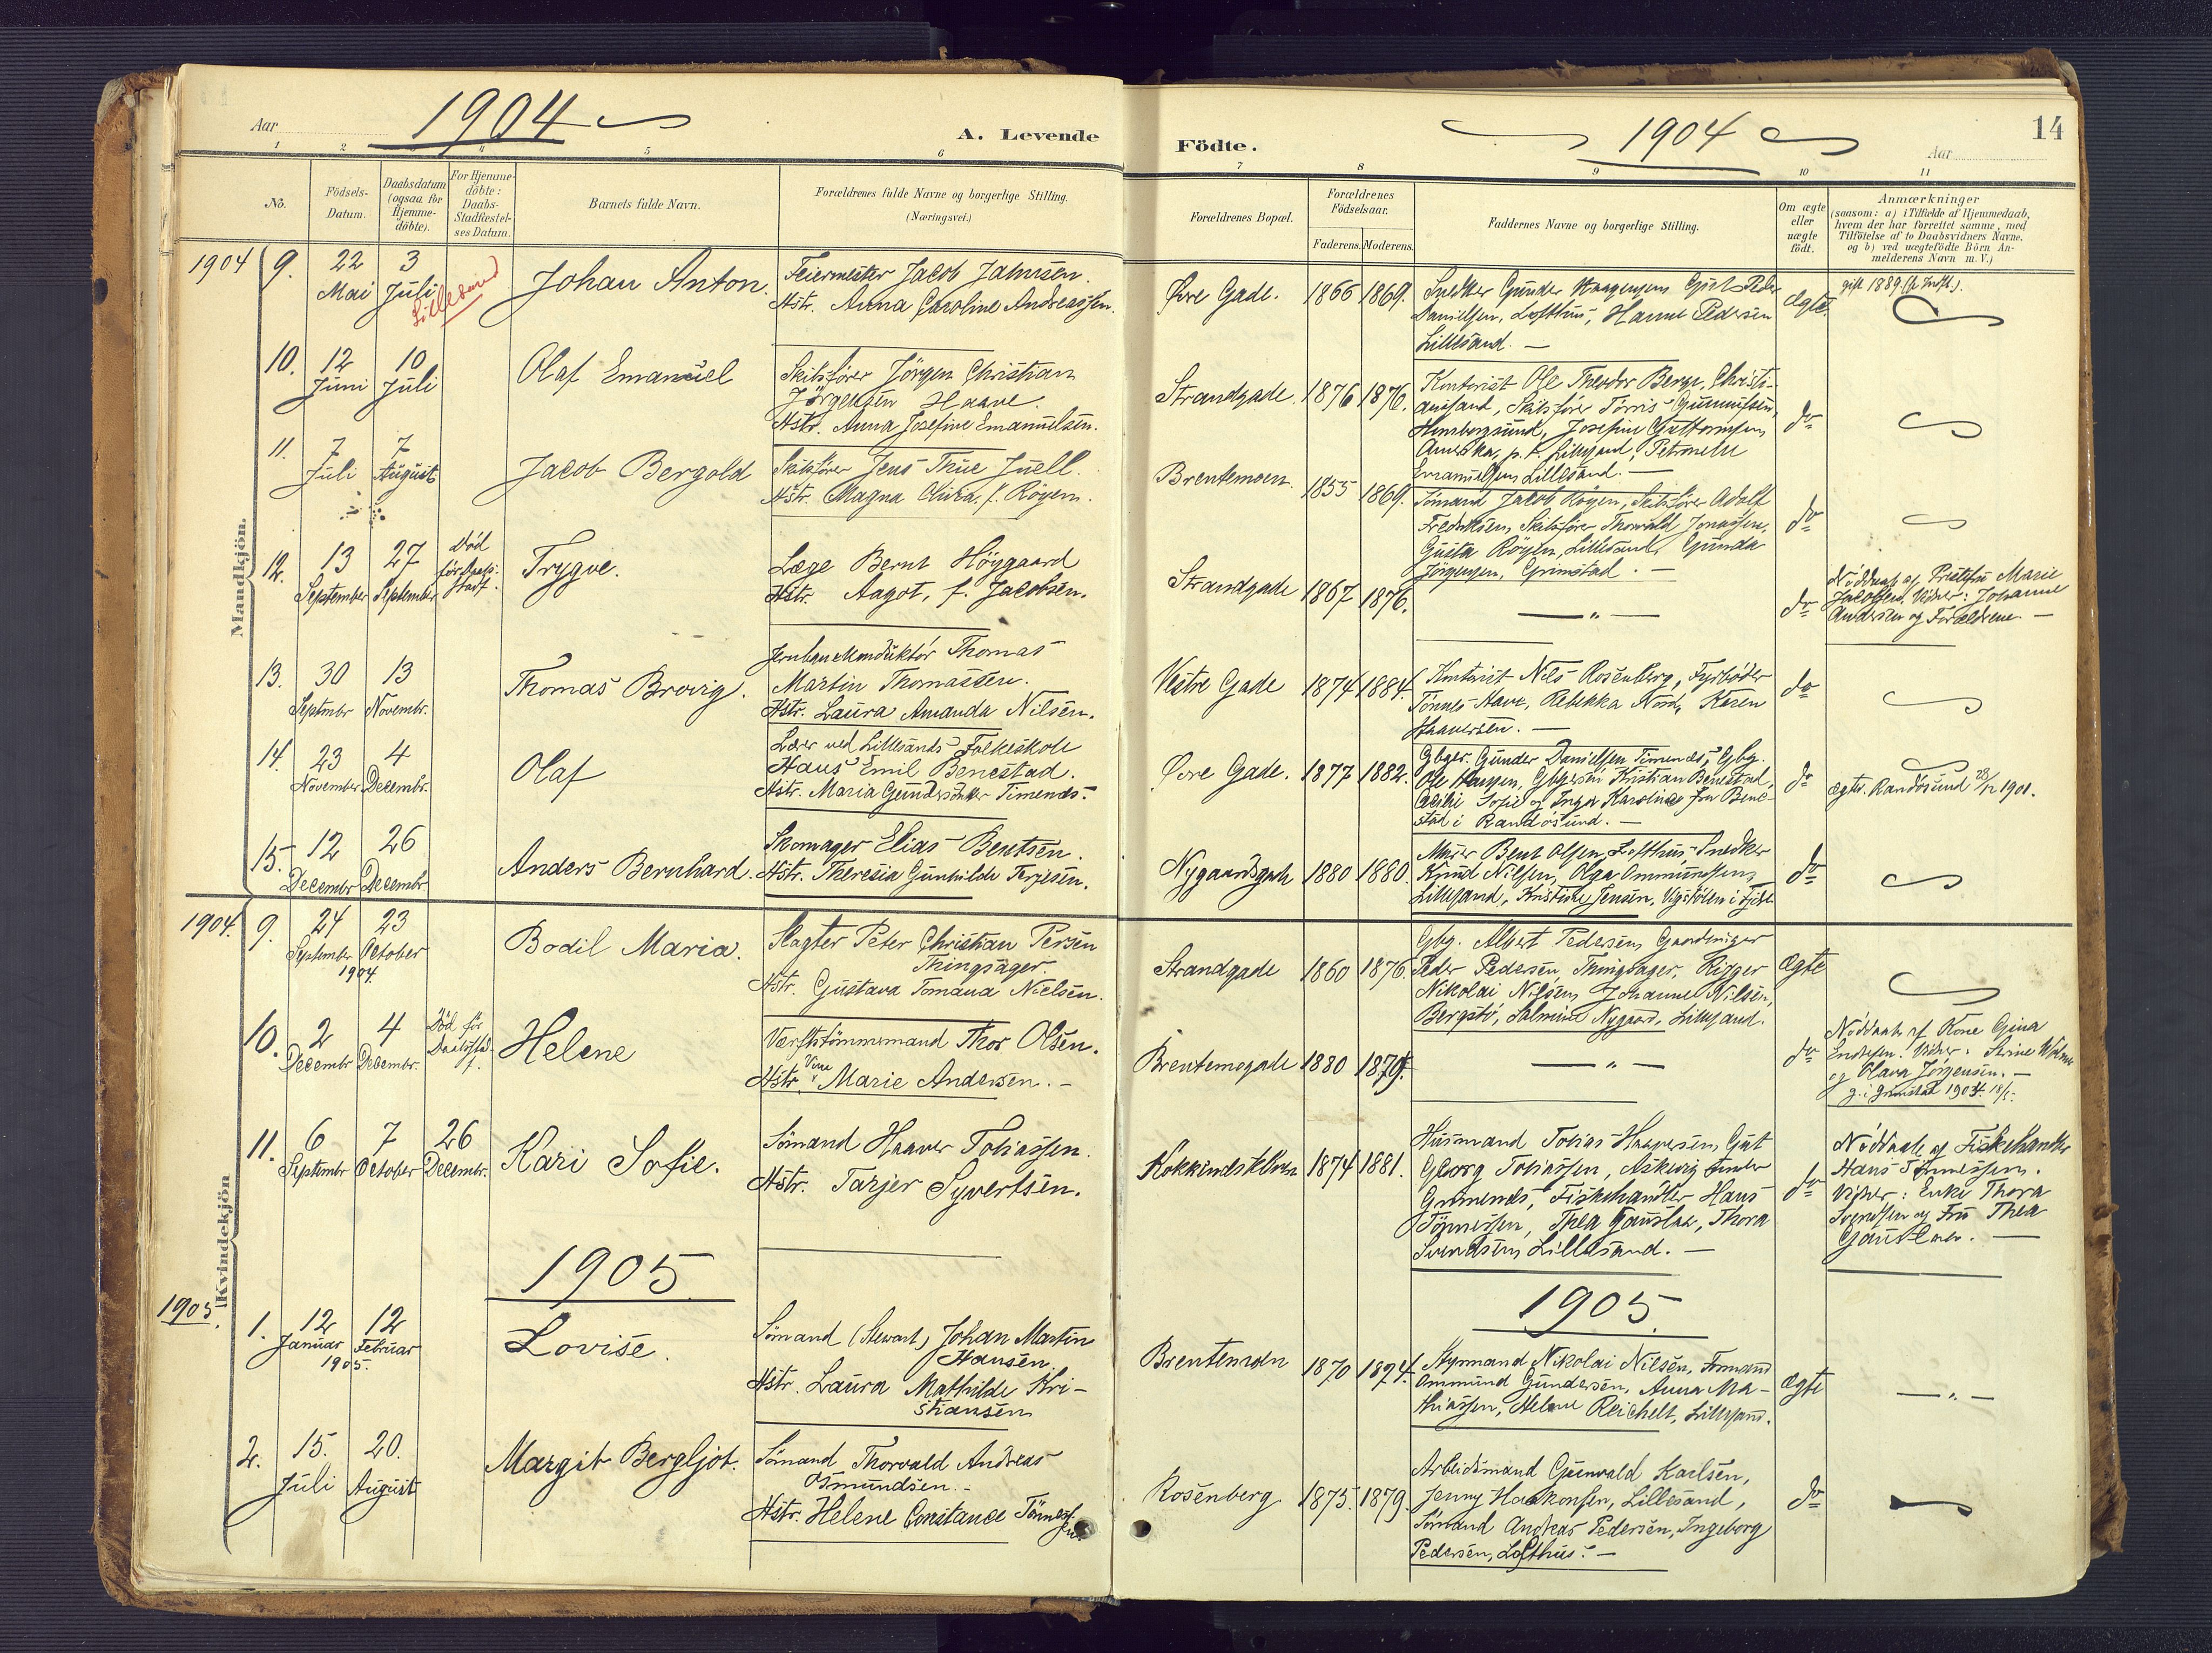 Aar 1904
A. Levende
Födte.
1904
Aar
14
1 2 3 4 5 6
7 8 9 10 11
No.
Födsels-
Datum.
Daabsdatum
(ogsaa for
Hjemme-
döbte).
For Hjemme-
döbte:
Daabs-
Stadfæstel-
ses Datum.
Barnets fulde Navn.
Forældrenes fulde Navne og borgerlige Stilling.
(Næringsvei.)
Forældrenes Bopæl.
Forældrenes
Födselsaar.
Faderens.
Moderens.
Faddernes Navne og borgerlige Stilling.
Om ægte
eller
uægte
födt.
Anmærkninger
(saasom: a) i Tilfælde af Hjemmedaab,
hvem der har forrettet samme, med
Tilföielse af to Daabsvidners Navne.
og b) ved uægtefödte Börn An-
melderens Navn m. V.)
Mandkjön.
1904
9.
22
Mai
3
Juli
Lillesand
Johan Anton.
Feiermester Jacob Jahnsen.
Hstr. Anna Caroline Andreassen.
Øvre Gade.
1866
1869.
Snedker Gunder
Danielsen, Lofthus, Hanne Pedersen
Lillesand. —
ægte.
gift 1889
10.
12
Juni
10
Juli
Olaf Emanuel
Skibsfører Jörgen Christian
Jörgensen Haave.
Hstr. Anna Josefine Emanuelsen.
Strandgade.
1876
1876.
Kontorist Ole Theodor Berge, Christi-
ansand, Skibsfører Tørris Gunnufsen,
Josefine Guttormsen,
Amerika, p. t. Lillesand, Petronelle
Emanuelsen Lillesand. —
do
11.
7
Juli
7
August
Jacob Bergold
Skibsfører Jens Thue Juell.
Hstr. Magna Olivia, f. Röyem.
Brentemoen.
1855
1869.
Sömand Jakob Röyen, Skibsfører Adolf
Fredriksen, Skibsfører Thorvald Jonassen,
Gusta Röyen, Lillesand, Gunda
Jörgensen, Grimstad. —
do
12.
13
September
27
September
Död
för Daabs-
stadf.
Trygve.
Læge Bernt Höygaard
Hstr. Aagot, f. Jacobsen.
Strandgade
1867
1876.
— " —
do
Nöddaab af Marie
Jacobsen. Vidner: Johanne
Andersen og Forældrene. —
13.
30
Septmbr
13
Novembr.
Thomas Brovig.
Jernbanekonduktör Thomas
Martin Thomassen.
Hstr. Laura Amanda Nilsen.
Vestre Gade
1874
1884.
Kontorist Nils Rosenberg, Fyrbøder
Tönnes Have, Rebekka Nord, Karen
Haaversen. —
do
14.
23
November
4
Decembr.
Olaf
Lærer ved Lillesands Folkeskole
Hans Emil Benestad.
Hstr. Maria Gundersdatter Timenes.
Øvre Gade.
1877
1882.
Gbger. Gunder Danielsen Timenes, Gbg.
Ole Hansen, Kristian Benestad,
Sofie og Inga Karolines fra Bene-
stad i Randösund. —
do
ægtev. Randösund 28/12 1901.
15.
12
Decembr
26
Decembr
Anders Bernhard.
Skomager Elias Bentsen.
Hstr. Theresia Gunhilde Terjesen.
Nygaardsgade
1880
1880.
Murer Bent Olsen, Lofthus, Snedker
Knud Nilsen, Olga Ommundsen,
Lillesand, Kristine Jensen,
do
Kvindekjön
1904.
9.
24
September
23
October
1904.
Bodil Maria.
Slagter Peter Christian Persen
Thingsager.
Hstr. Gustava Tomana Nielsen.
Strandgade
1860
1876.
Gbg. Albert Pedersen, Gaardeier
Peder Pedersen Thingsager, Rigger
Nikolai Nilsen, Johanne Nilsen,
Bergstö, Salmine Nygaard, Lillesand.
ægte
10.
2
Decembr
4
Decembr.
Död för
Daabsstad-
f.
Helene
Værftstömmermand Thor Olsen.
Hstr. Vine Marie Andersen. —
Brentemogade
1880
1879.
— " —
do
Nöddaab af Kone Gina
Vidner: Serine
og Olava Jörgensen. —
g. i Grimstad 1904 18/5.
11.
6
Septmbr
7
October
26
Decembr.
Kari Sofie.
Sömand Haaver Tobiassen.
Hstr. Tarjer Syvertsen.
1874
1881.
Husmand Tobias Haaversen, Gut
Georg Tobiassen, Askevig under
Fiskehandler Hans
Tönnessen, Thea Gauslaa, Thora
Svendsen, Lillesand. —
do
Nöddaab af Fiskehandler
Hans Tönnessen.
Vidner: Enke Thora
Svendsen og Fru Thea
Gauslaa. —
1905.
1905.
1905.
1.
12
Januar
12
Februar
1905.
Lovise.
Sömand (Stewart) Johan Martin
Hansen.
Hstr. Laura Mathilde Kri-
stiansen
Brentemoen
1870
1874.
Styrmand Nikolai Nilsen, Formand
Ommund Gundersen, Anna Ma-
thiassen, Helene Reichelt, Lillesand.
ægte
— " —
2.
15.
Juli
20.
August
Margit Bergljot.
Sömand Thorvald Andreas
Osmundsen. -
Hstr. Helene Constance Tönnes-
sen.
Rosenberg
1875.
1879.
Arbeidsmand Gunvald Karlsen,
Jenny Haakonsen, Lillesand,
Sömand Andreas Pedersen, Ingeborg
Pedersen, Lofthus. —
do